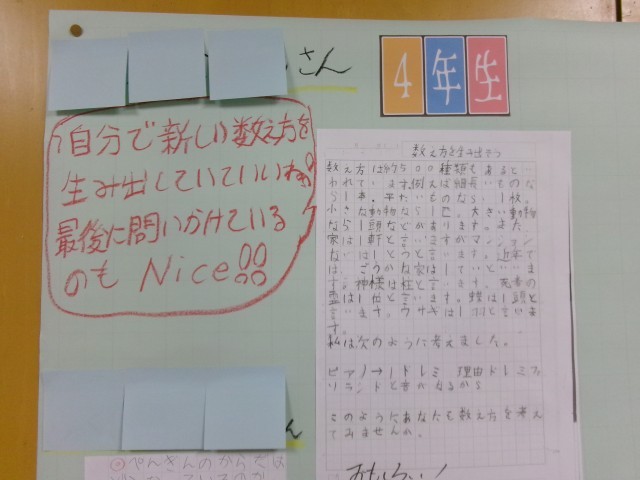 さん
4年生
自分で新しい数え方を
生み出していていいね。
最後に問いかけている
のもNice!!
数え方を生み出そう
数え方は約500種類もあると
われています。例えば細長いものな
ら1本。平たいものなら1枚。
小さな動物なら1匹。大きい動物
なら1頭などがあります。また
家は1軒と言いますがマンション
ないは1とつと言います。近年で
は、ごうかな家は1ていと
す。神様は柱と言います。死者の
霊は1位と言います。蝶は1頭と
言います。ウサギは1羽と言いま
す。
私は次のように考えました。
ピアノ→1ドレミ 理由ドレミファ
ソランドと音がなるから
このようにあなたも数え方を考え
てみませんか。
おもしろい!
ぺんぎんのからだは